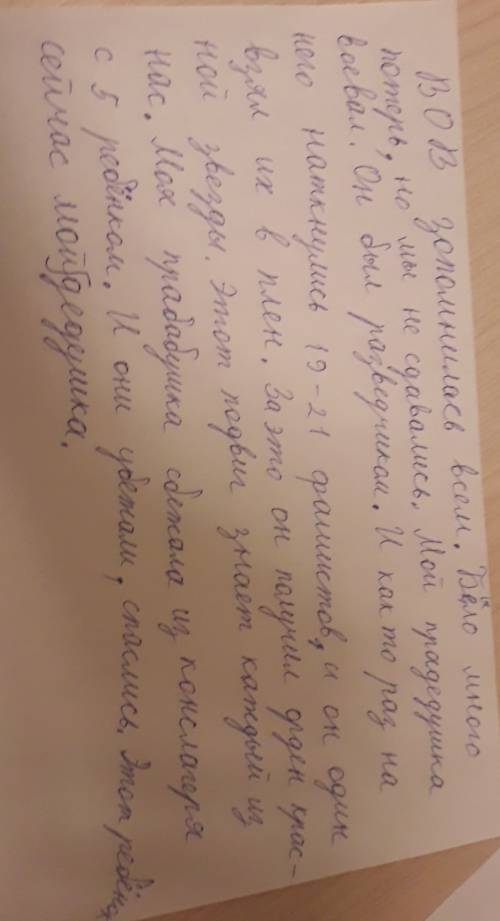 ВОВ зопомнилась всем. Было много
потерь, но мы не сдавались. Мой прадедушка
воевал. Он был разведчиком. И как то раз на
него наткнулись 19-21 фашистов, и он один
взял их в плен. За это он получил орден крас-
ной звезды. Этот подвиг знает каждый из
нас. Моя прабабушка сбежала из конслагеря
с 5 ребёнком. И они убежали, спаслись. Этот ребёнок
сейчас мой дедушка.